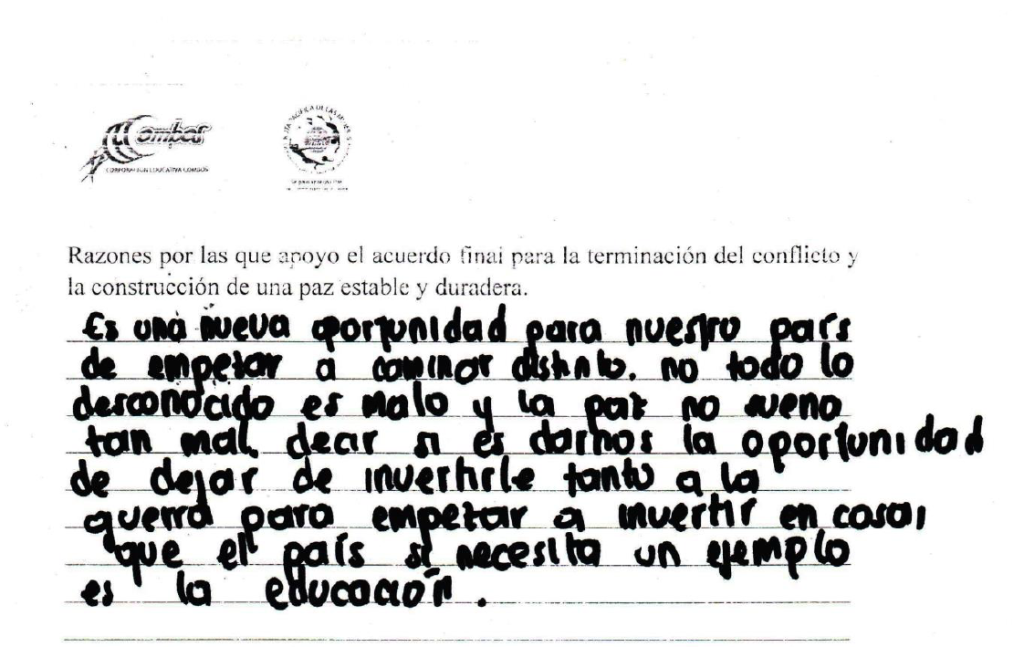 Combos
CORPORACIÓN EDUCATIVA COMBOS
RUTA PACIFICA DE LAS MUJERES
Razones por las que apoyo el acuerdo final para la terminación del conflicto y
la construcción de una paz estable y duradera.
Es una nueva oportunidad para nuestro país
de empezar a caminar distinto. no todo lo
desconocido es malo y la paz no suena
tan mal. decir si es darnos la oportunidad
de dejar de invertirle tanto a la
guerra para empezar a invertir en cosas
que el país si necesita un ejemplo
es la educación.